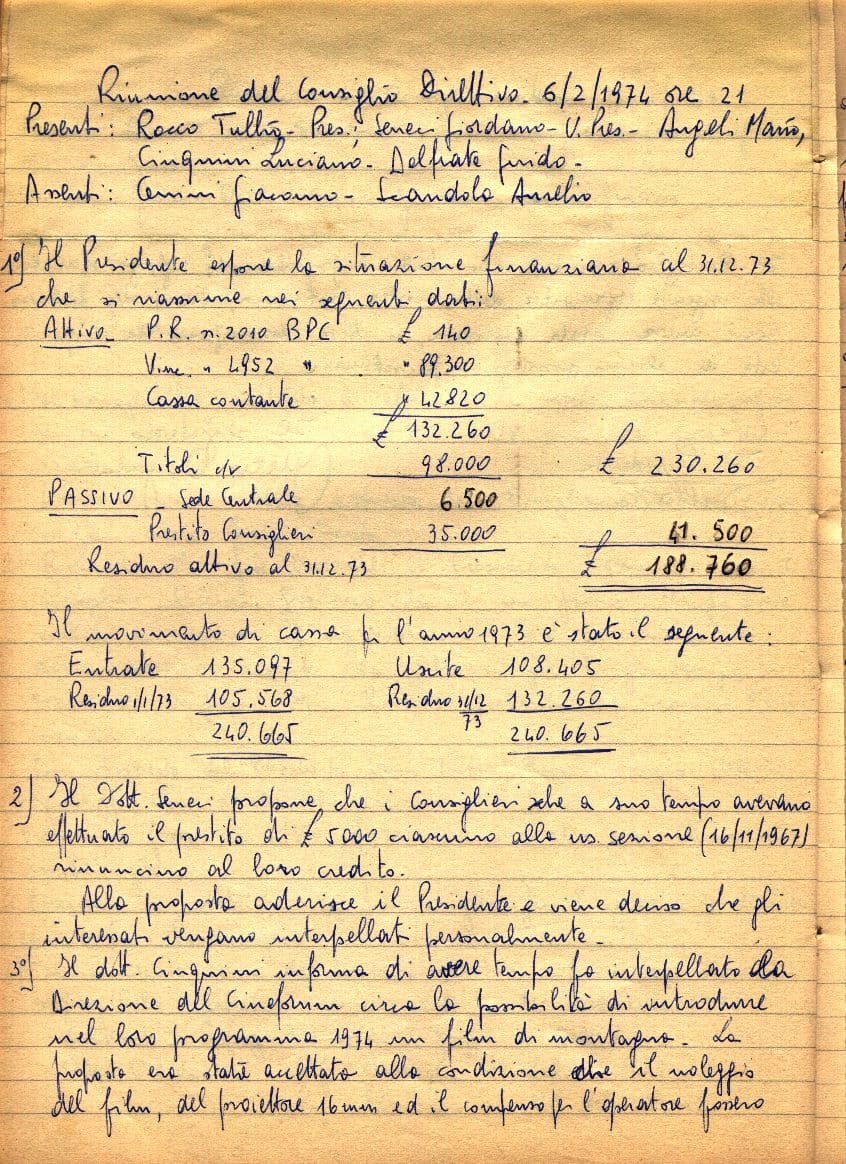 Riunione del Consiglio Direttivo. 6/2/1974 ore 21
Presenti: Rocco Tullio - Pres.; Seneci Giordano - V. Pres. - Angeli Mario,
Cinquini Luciano - Delfrate Guido -
Assenti: Cenini Giacomo - Scandola Aurelio
1°) Il Presidente espone la situazione finanziaria al 31.12.73
che si riassume nei seguenti dati:
Attivo - P.R. n. 2010 BPC £ 140
Vinc. " 4952 " " 89.300
Cassa contante " 42820
£ 132.260
Titoli c/v 98.000 £ 230.260
PASSIVO - Sede Centrale 6.500
Prestito Consiglieri 35.000 41.500
Residuo attivo al 31.12.73 £ 188.760
Il movimento di cassa per l'anno 1973 è stato il seguente:
Entrate 135.097 Uscite 108.405
Residuo 1/1/73 105.568 Residuo 31/12/73 132.260
240.665 240.665
2) Il Dott. Seneci propone che i Consiglieri che a suo tempo avevano
effettuato il prestito di £ 5000 ciascuno alla ns. sezione (16/11/1967)
rinuncino al loro credito.
Alla proposta aderisce il Presidente e viene deciso che gli
interessati vengano interpellati personalmente -
3°) Il dott. Cinquini informa di avere tempo fa interpellato la
Direzione del Cineforum circa la possibilità di introdurre
nel loro programma 1974 un film di montagna - La
proposta era stata accettata alla condizione che il noleggio
del film, del proiettore 16 mm ed il compenso per l'operatore fossero